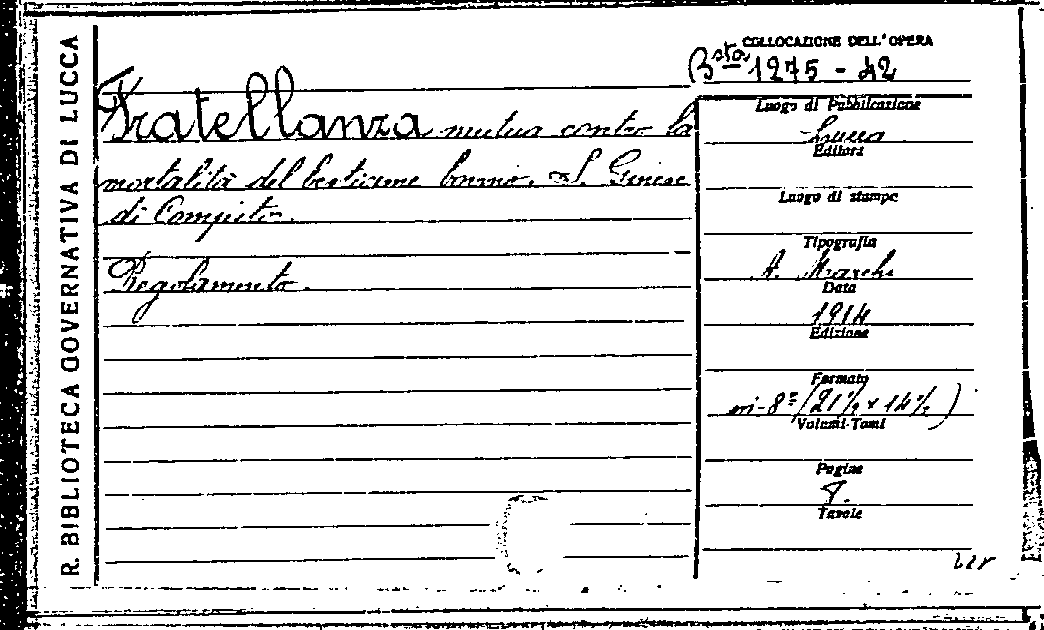 R. BIBLIOTECA GOVERNATIVA DI LUCCA
COLLOCAZIONE DELL'OPERA
Bsta 1275 - 42
Fratellanza mutua contro la
mortalità del bestiame bovino. S. Ginese
di Compito.
Regolamento.
Luogo di Pubblicazione
Lucca
Editore
Luogo di stampa
Tipografia
A. Marchi
Data
1914
Edizione
Formato
in-8º (21½ x 14½)
Volumi-Tomi
Pagine
8.
Tavole